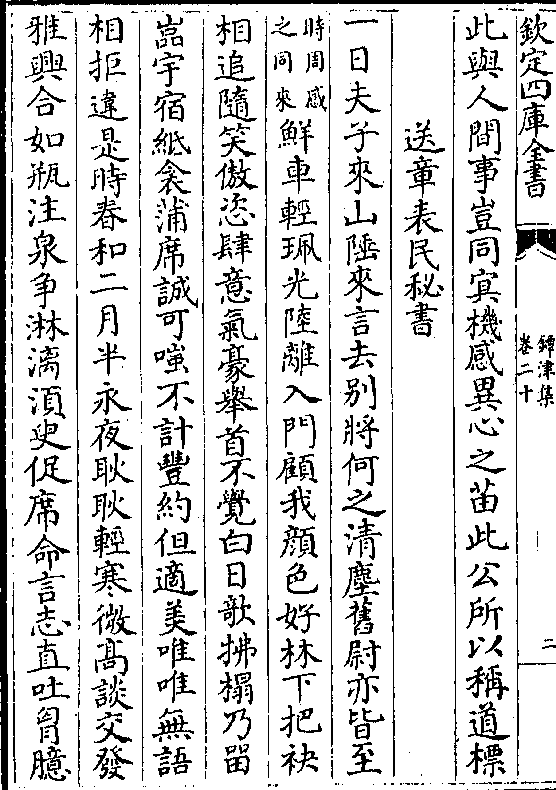 欽定四庫全書
鐔津集
卷二十
二
此與人間事豈同㝠機感異心之苗此公所以稱道標
送章表民秘書
一日夫子來山陲來言去别將何之清塵舊尉亦皆至
時周感
之同來
鮮車輕珮光陸離入門顧我顔色好林下把袂
相追隨笑傲恣肆意氣豪舉首不覺白日欹拂榻乃留
嵓宇宿紙衾蒲席誠可嗤不計豐約但適美唯唯無語
相拒違是時春和二月半永夜耿耿輕寒微髙談交發
雅興合如瓶注泉争淋漓湏臾促席命言志直吐胷臆